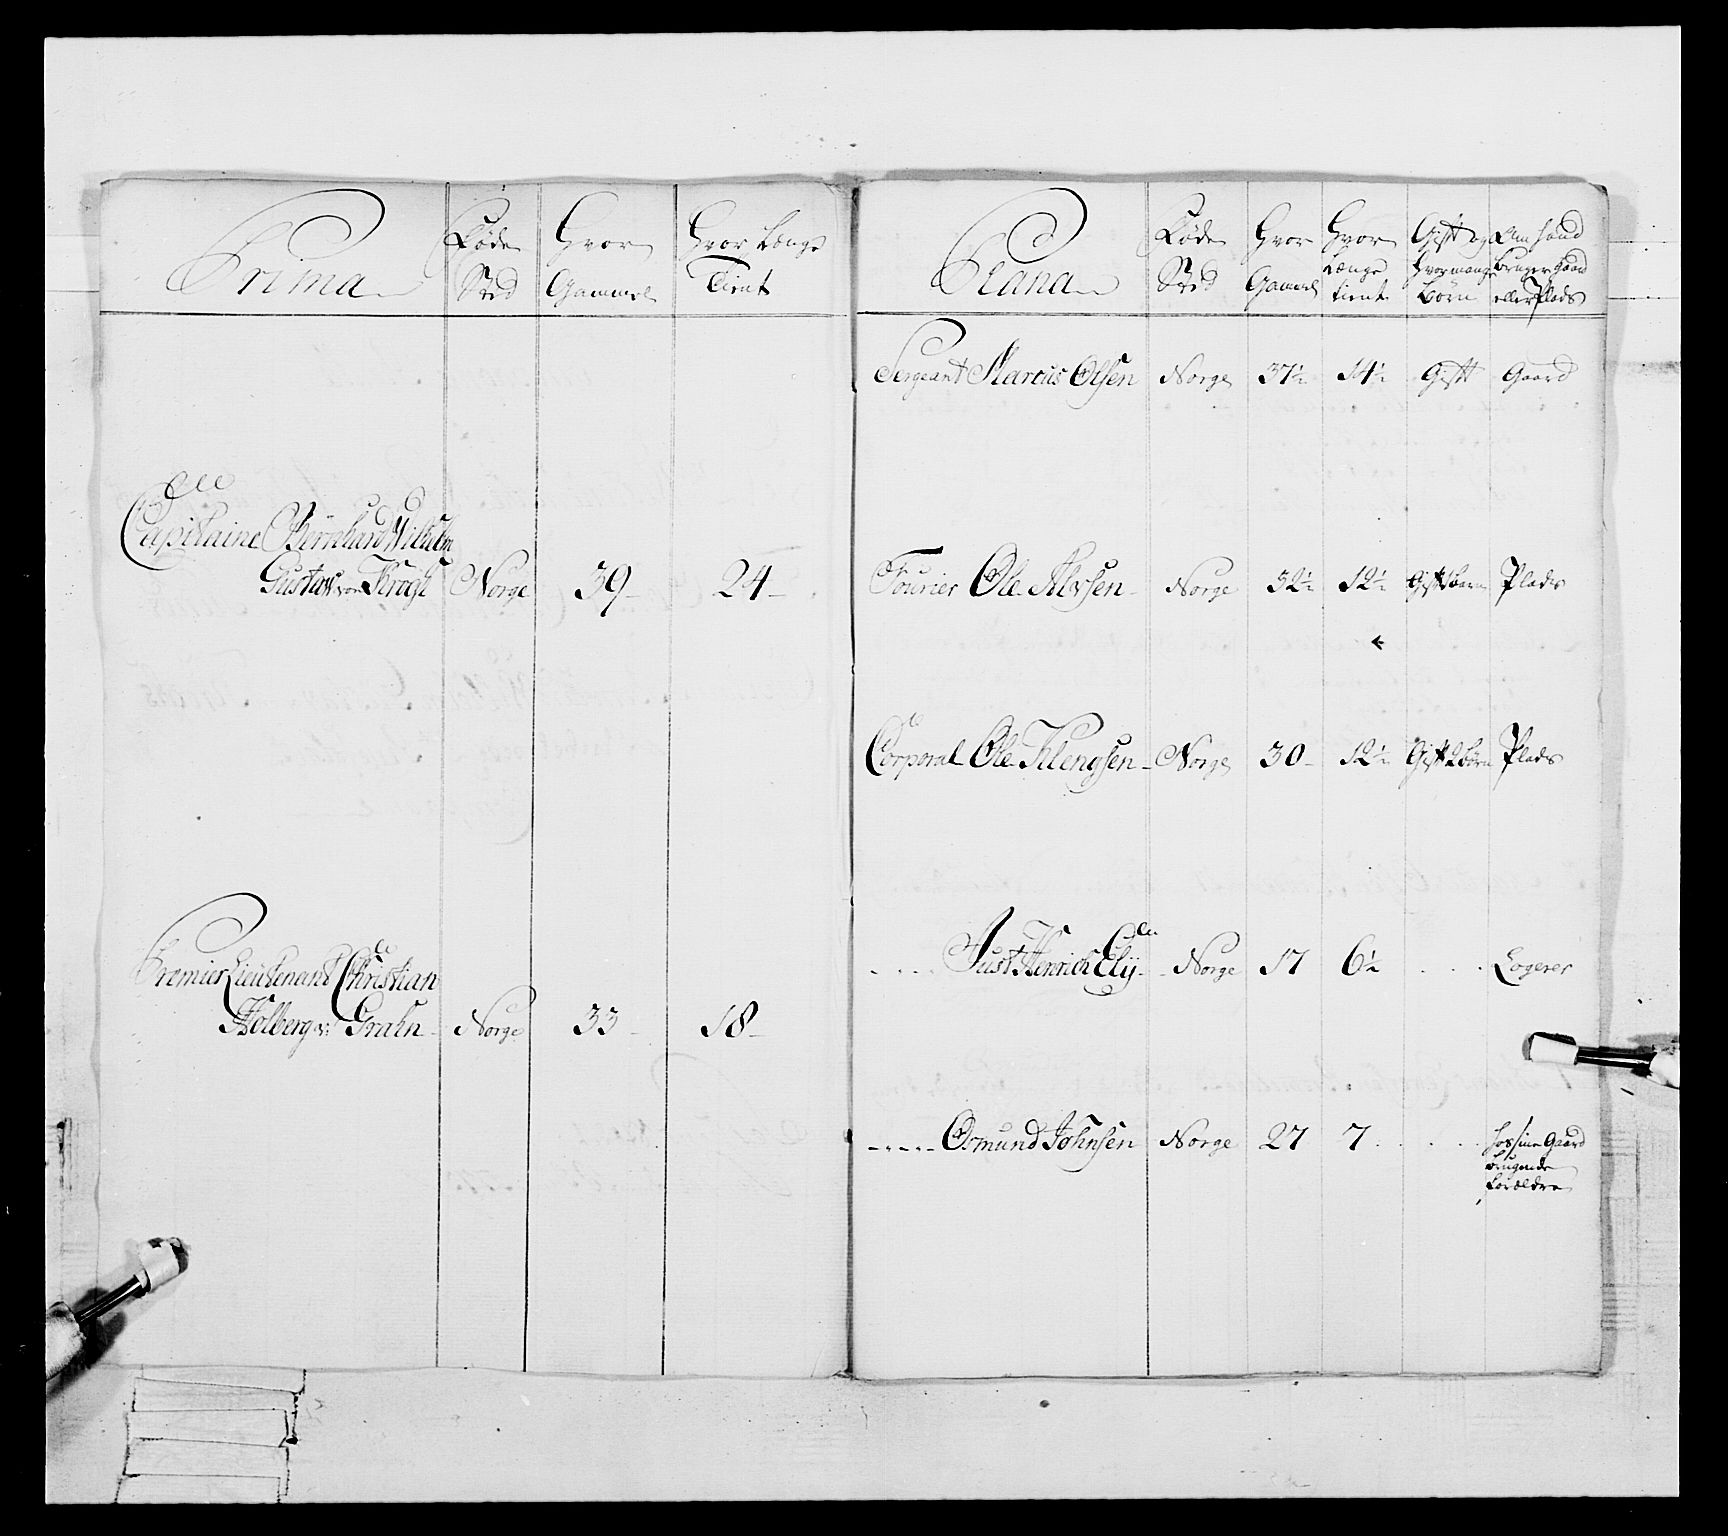 Prima
Føde Sted
Hvor Gammel
Hvor Længe Tient
Capitaine Bernhard Wilhelm
Gustav von Krogh Norge 39 24
Premier Lieutenant Christian
Holberg v: Grahn Norge 33 18
Plana
Føde Sted
Hvor Gammel
Hvor Længe tient
Gift og hvor mange Børn
Om hand bruger Gaard eller Plads
Sergeant Marcus Olsen Norge 37½ 14½ Gift Gaard
Fourier Ole Alvsen Norge 32½ 12½ Gift 1 barn Plads
Corporal Ole Klengsen Norge 30 12½ Gift 2 børn Plads
Just Henrich Elij Norge 17 6½ Logerer
Osmund Johnsen Norge 27 7 hos sine Gaard
brugende
Forældre